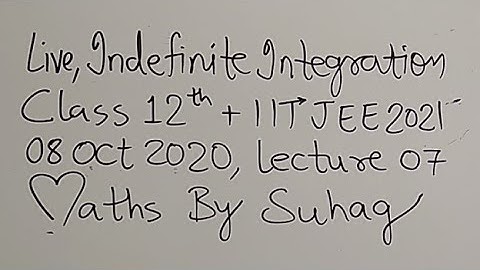 Live, Indefinite Integration
Class 12th + IIT JEE 2021
08 Oct 2020, Lecture 07
Maths By Suhag